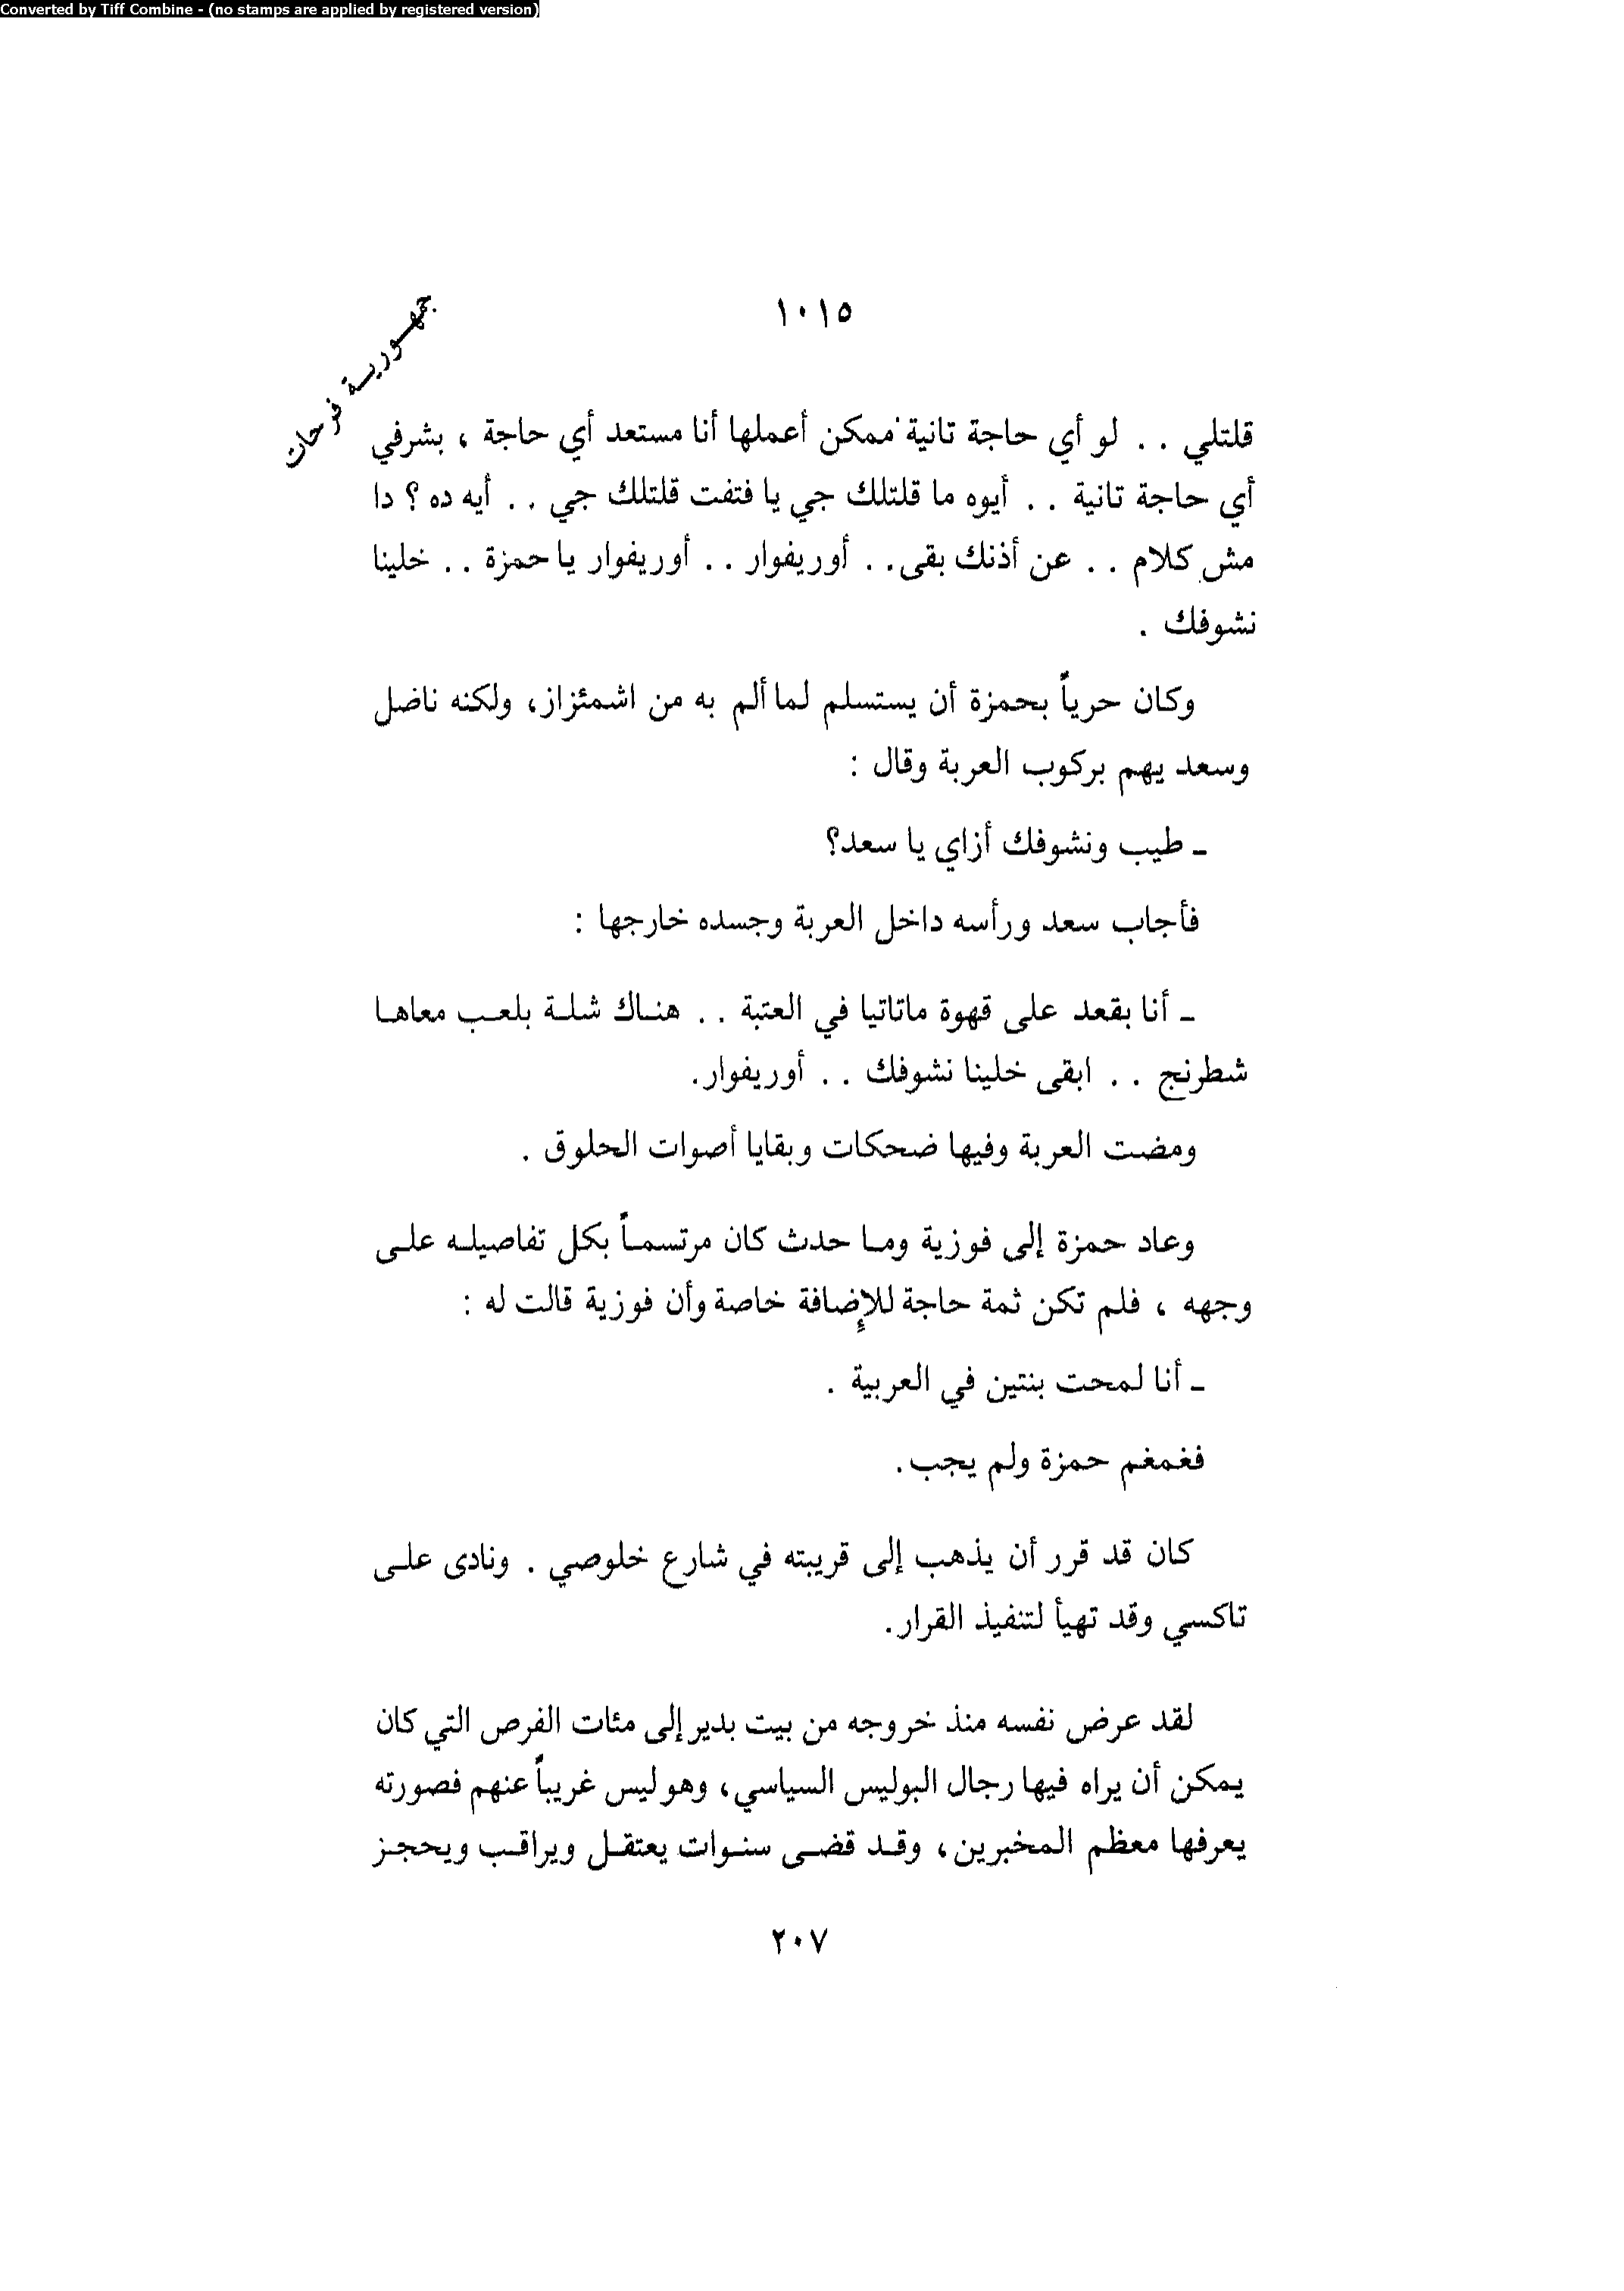 Converted by Tiff Combine - (no stamps are applied by registered version)
١٠١٥
جمهورية فرحات
قلتلي .. لو أي حاجة تانية ممكن أعملها أنا مستعد أي حاجة ، بشرفي
أي حاجة تانية .. أيوه ما قلتلك جي يا فتفت قلتلك جي .. أيه ده ؟ دا
مش كلام .. عن أذنك بقى .. أوريفوار .. أوريفوار يا حمزة .. خلينا
نشوفك .
وكان حرياً بحمزة أن يستسلم لما ألم به من اشمئزاز، ولكنه ناضل
وسعد يهم بركوب العربة وقال :
ـ طيب ونشوفك أزاي يا سعد؟
فأجاب سعد ورأسه داخل العربة وجسده خارجها :
ـ أنا بقعد على قهوة ماتاتيا في العتبة .. هناك شلة بلعب معاها
شطرنج .. ابقى خلينا نشوفك .. أوريفوار.
ومضت العربة وفيها ضحكات وبقايا أصوات الحلوق .
وعاد حمزة إلى فوزية وما حدث كان مرتسماً بكل تفاصيله على
وجهه ، فلم تكن ثمة حاجة للإضافة خاصة وأن فوزية قالت له :
ـ أنا لمحت بنتين في العربية .
فغمغم حمزة ولم يجب.
كان قد قرر أن يذهب إلى قريبته في شارع خلوصي . ونادى على
تاكسي وقد تهيأ لتنفيذ القرار.
لقد عرض نفسه منذ خروجه من بيت بدير إلى مئات الفرص التي كان
يمكن أن يراه فيها رجال البوليس السياسي، وهو ليس غريباً عنهم فصورته
يعرفها معظم المخبرين، وقد قضى سنوات يعتقل ويراقب ويحجز
٢٠٧